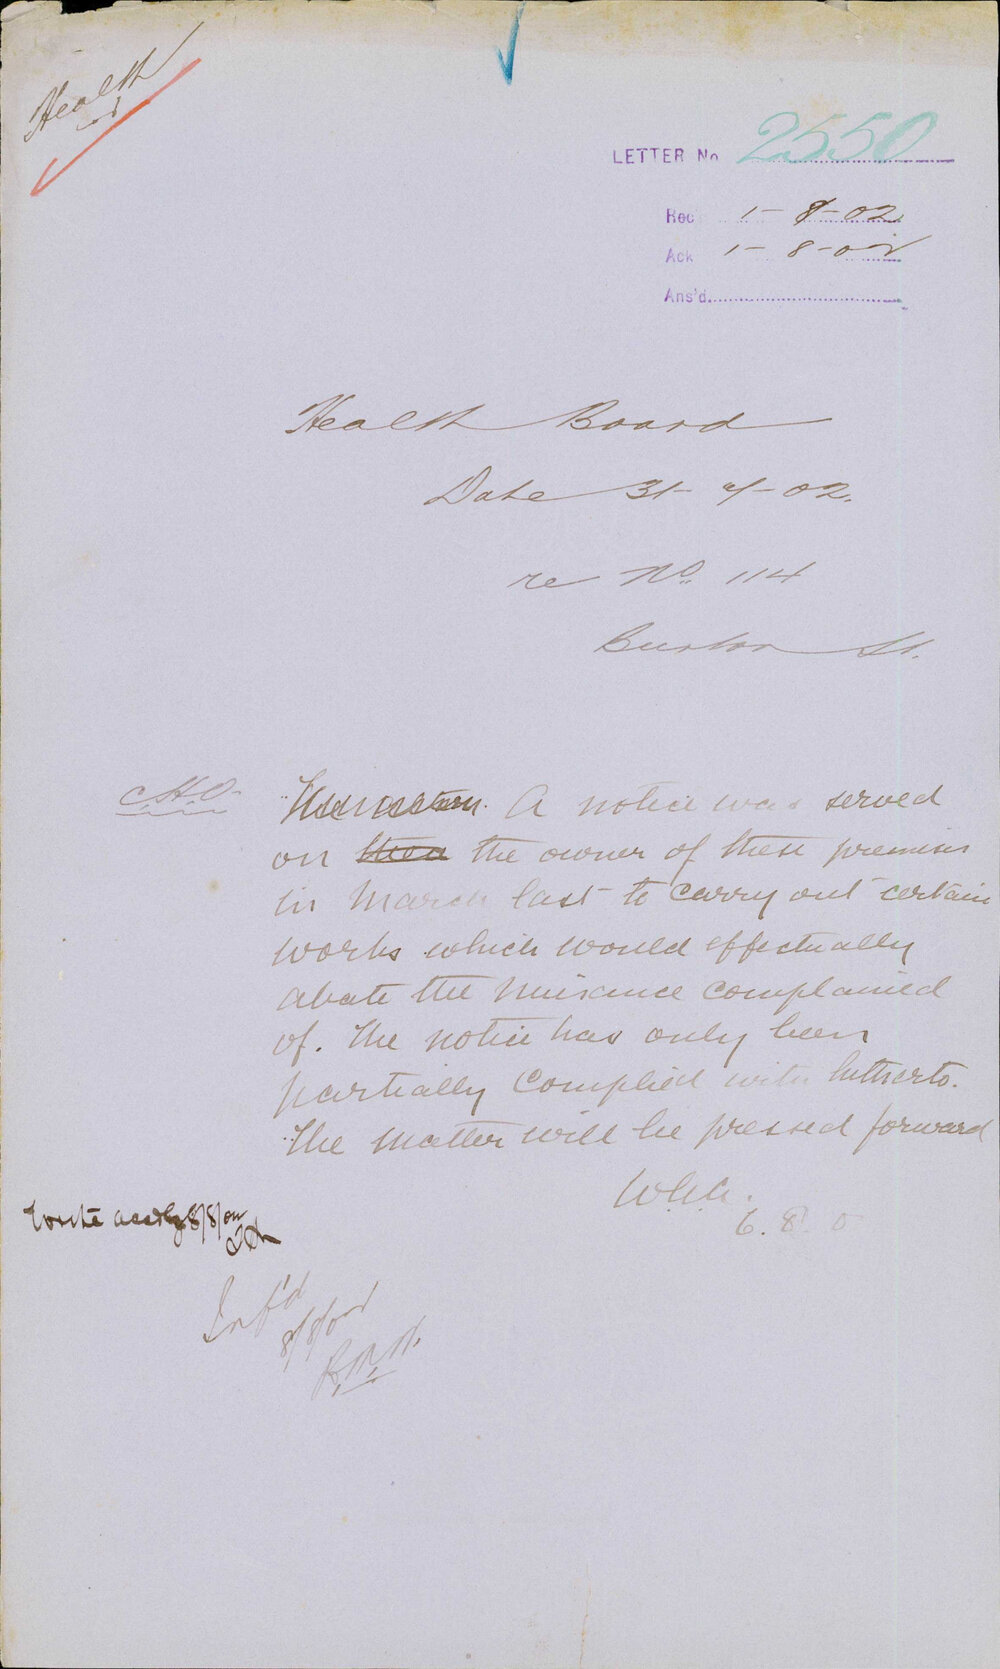 Health
LETTER No 2550
Rec 1-8-02
Ack 1-8-02
Ans'd
Health Board
Date 31-7-02.
re No. 114
Burton St.
C.H.O.
A notice was served
on the owner of these premises
in March last to carry out certain
works which would effectually
abate the nuisance complained
of. The notice has only been
partially complied with hitherto.
The matter will be pressed forward
6.8.0
Write accdly 8/8/02
Inf'd
8/8/02